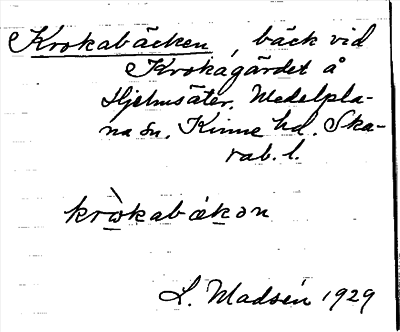 Krokabäcken, bäck vid
Krokagärdet å
Hjelmsäter, Medelpla-
na sn. Kinne hd. Ska-
rab. l.
kròkabækən
L. Madsén 1929